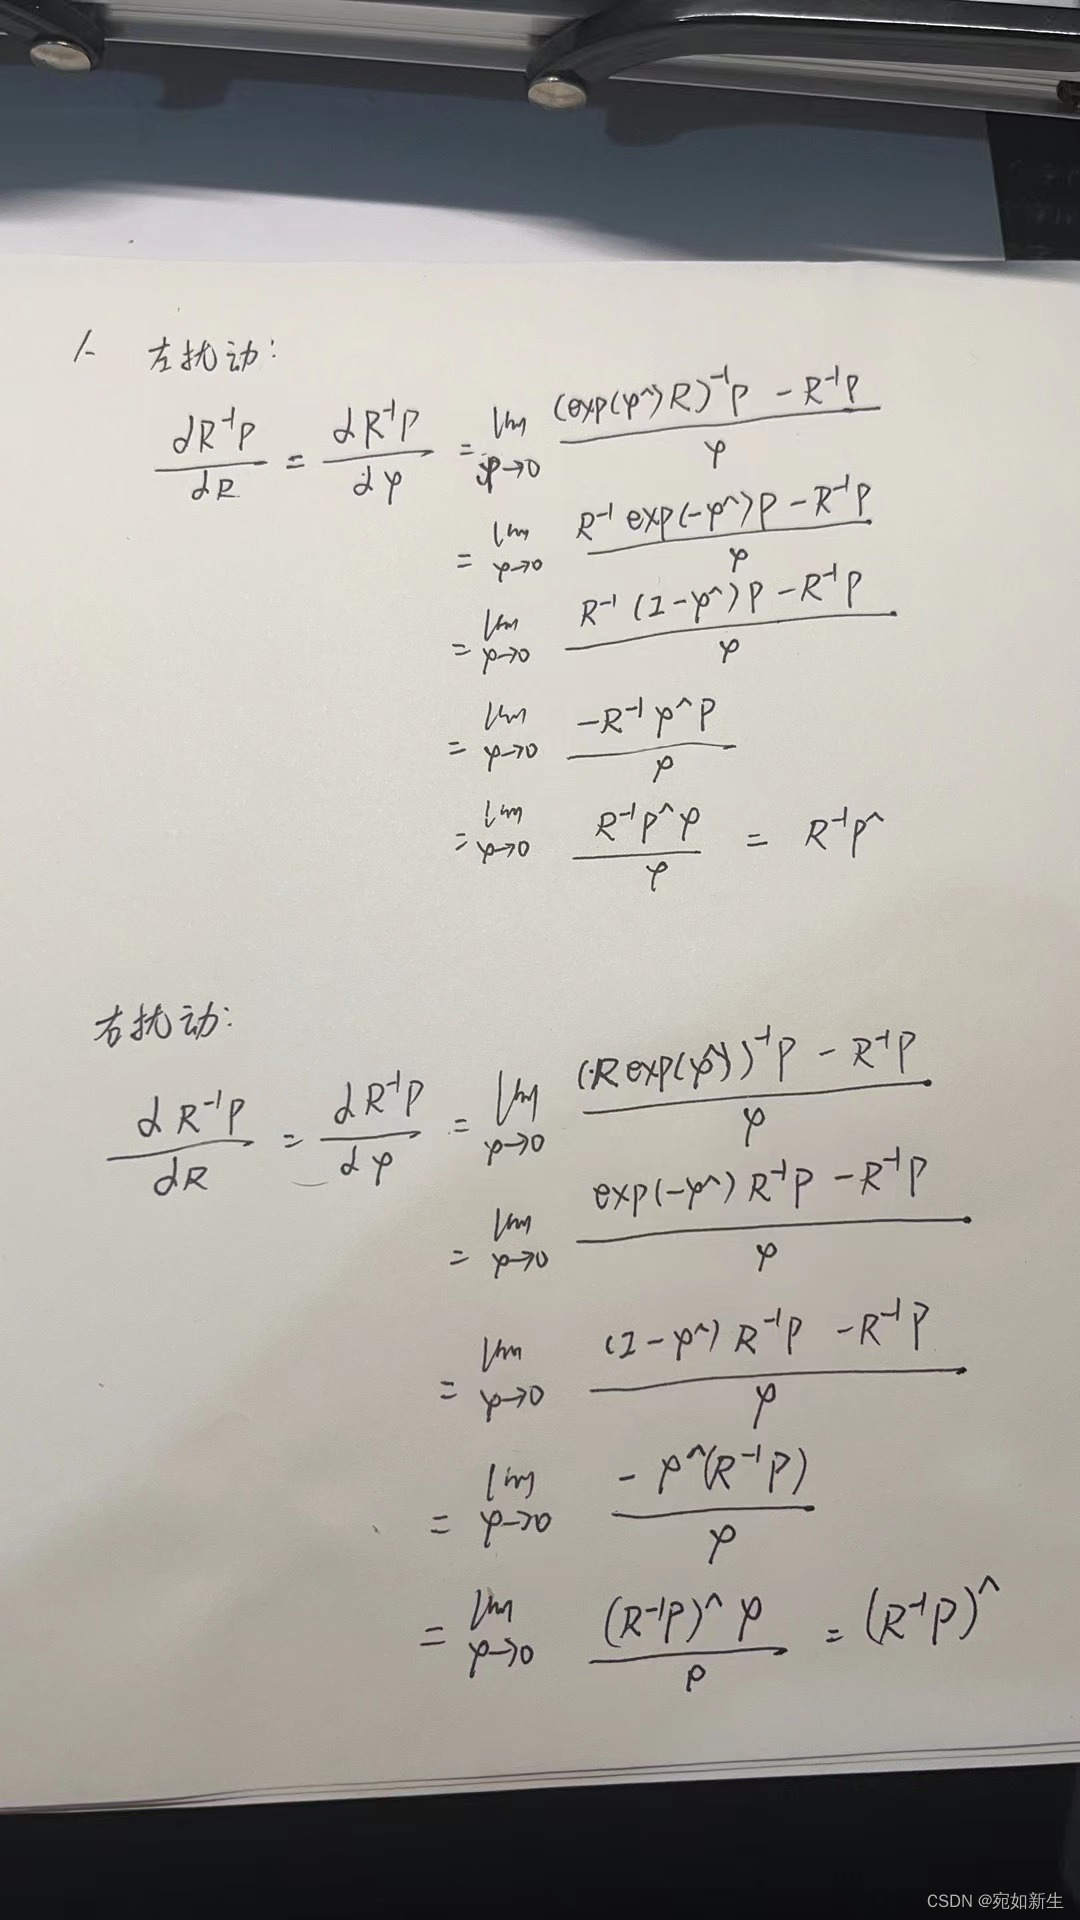 1. 左扰动:
dR⁻¹P/dR = dR⁻¹P/dφ = lim φ→0 ((exp(φ^)R)⁻¹P - R⁻¹P)/φ
= lim φ→0 (R⁻¹ exp(-φ^)P - R⁻¹P)/φ
= lim φ→0 (R⁻¹ (I-φ^)P - R⁻¹P)/φ
= lim φ→0 (-R⁻¹ φ^P)/φ
= lim φ→0 (R⁻¹P^φ)/φ = R⁻¹P^
右扰动:
dR⁻¹P/dR = dR⁻¹P/dφ = lim φ→0 ((R exp(φ^))⁻¹P - R⁻¹P)/φ
= lim φ→0 (exp(-φ^) R⁻¹P - R⁻¹P)/φ
= lim φ→0 ((I-φ^) R⁻¹P - R⁻¹P)/φ
= lim φ→0 (-φ^(R⁻¹P))/φ
= lim φ→0 ((R⁻¹P)^φ)/φ = (R⁻¹P)^
CSDN @宛如新生